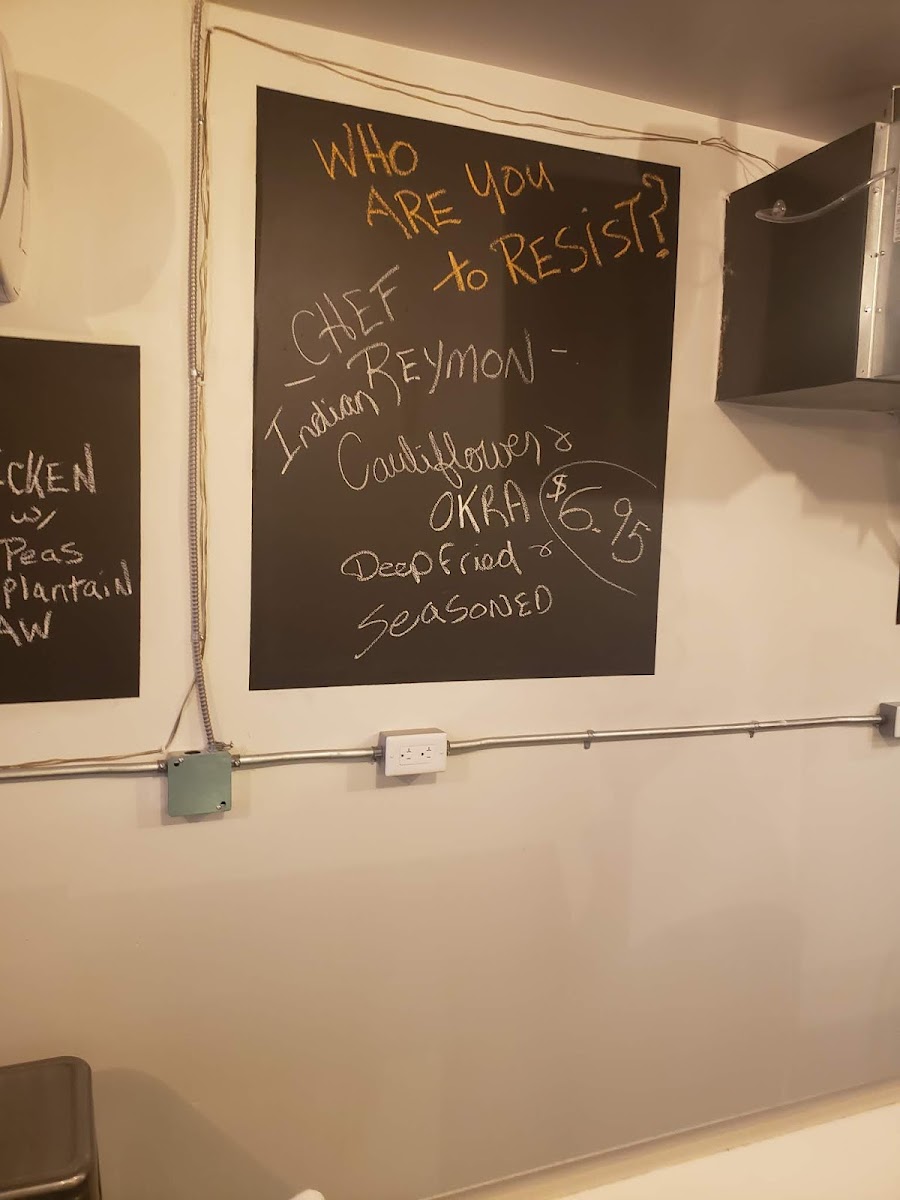 WHO
ARE YOU
to RESIST?
CHEF
- REYMON -
Indian
Cauliflower &
OKRA $6.95
Deep Fried &
SEASONED
CKEN
w/
Peas
plantain
AW